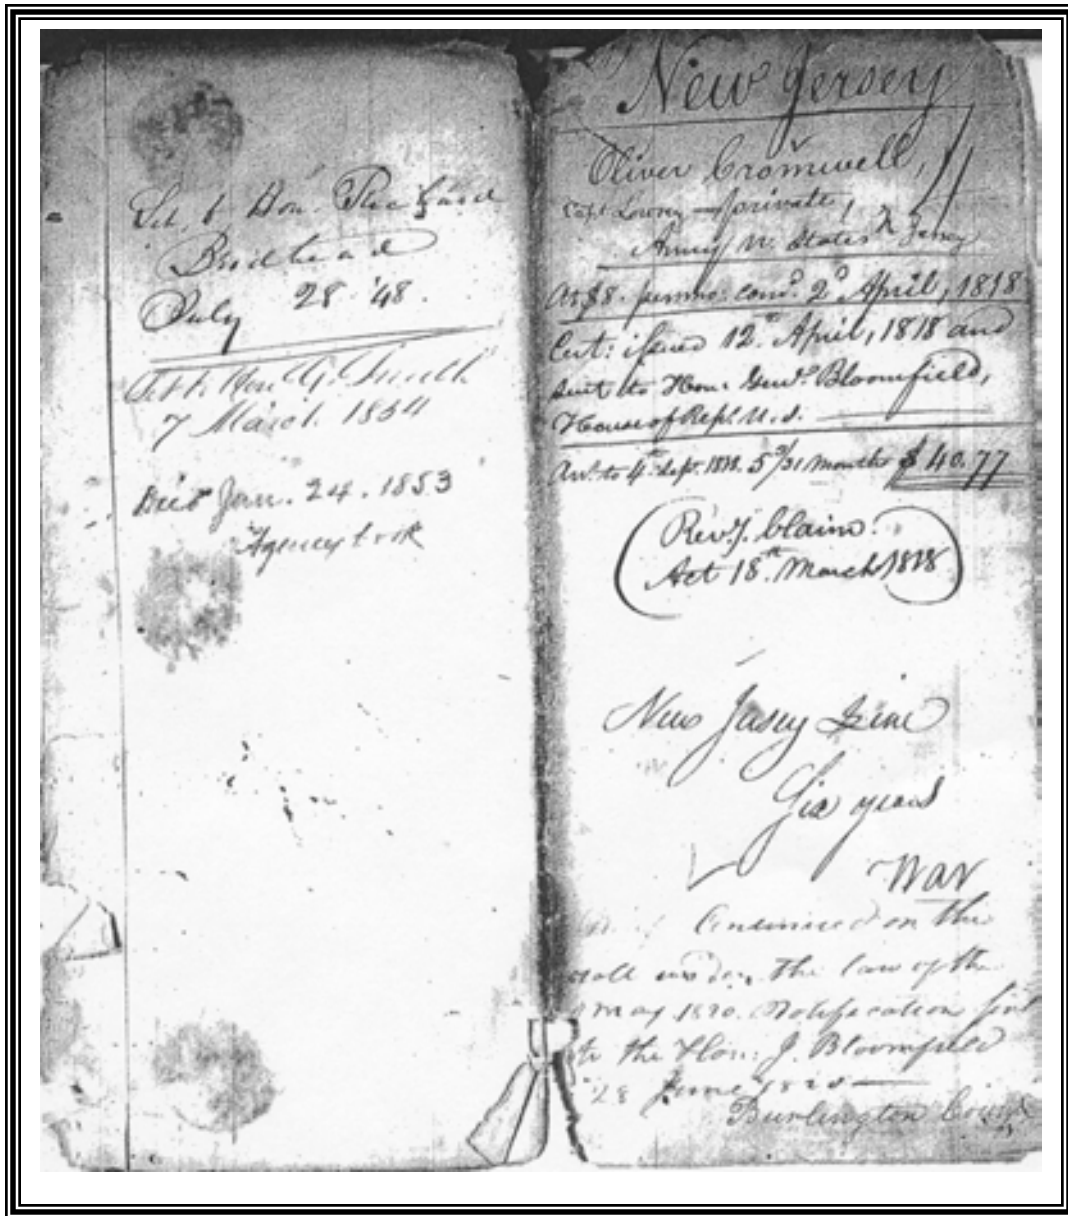 Let. to Hon.
July 28 '48.
Let. to Hon. G.
7 March. 1854
Died Jan. 24. 1853
Agency
New Jersey
Oliver Cromwell,
Capt Lowrey — private,
Army U. States
At $8. permo. comd. 2d April, 1818
Cert: issued 12th April, 1818 and
sent to Hon: Genl. Bloomfield,
House of Reps. U.S.
Arr. to 4th Sept. 1818. 5 3/31 months $40.77
Revy. Claim.
Act 18th March 1818
New Jersey Line
Six years
War
Continued on the
roll under the law of the
May 1820. Notification sent
to the Hon: J. Bloomfield
28 June
Burlington County